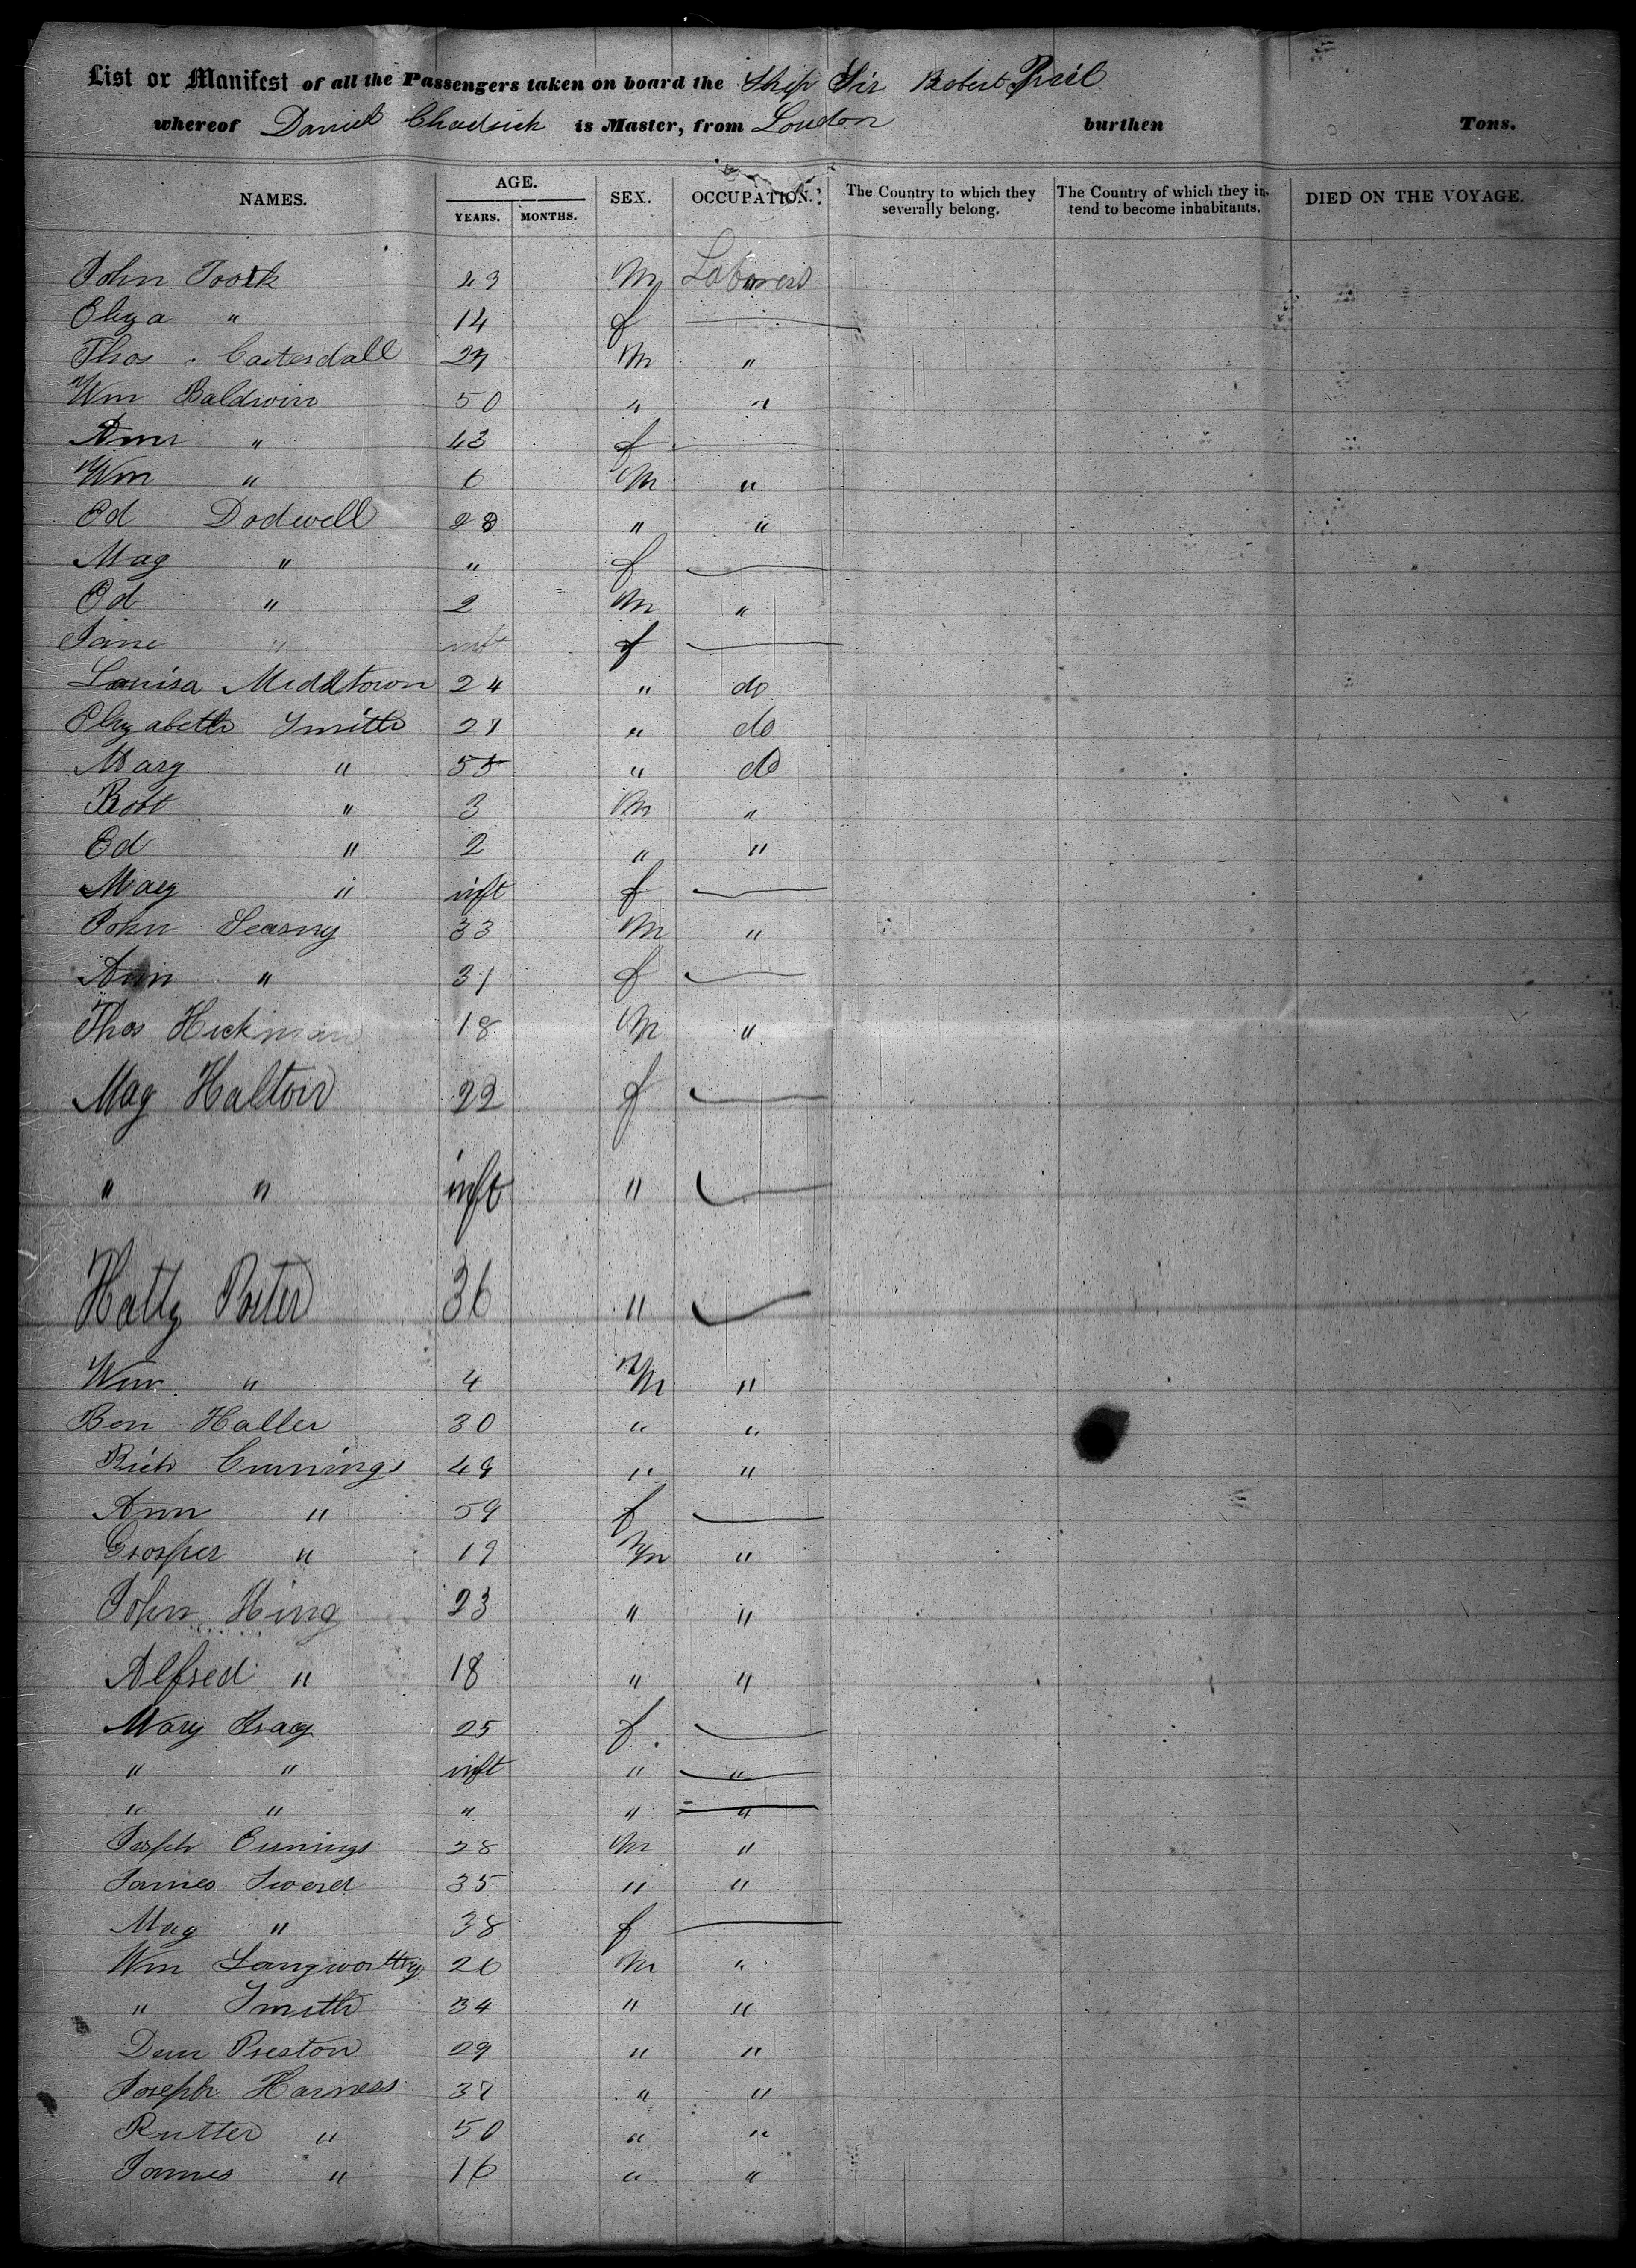 List or Manifest of all the Passengers taken on board the Ship Sir Robert Peel
whereof Daniel Chadsick is Master, from London burthen Tons.
NAMES. AGE. YEARS. MONTHS. SEX. OCCUPATION. The Country to which they severally belong. The Country of which they intend to become inhabitants. DIED ON THE VOYAGE.
John 43 M Laborers
Eliza " 14 f
Thos M "
Wm Baldwin 50 " "
Ann " 43 f
Wm " 6 M "
Ed Dodwell 28 " "
Mag " " f
Ed " 2 M "
Jane " inft f
Louisa Middtown 24 " do
Elizabeth Smith 21 " do
Mary " 55 " do
Robt " 3 M "
Ed " 2 " "
Mary " inft f
John 33 M "
Ann " 31 f
Thos Hickman 18 M "
Mag Haltoir 22 f
" " inft "
Hatty Porter 36 "
Wm " 4 M "
Ben Haller 30 " "
Rich Cunnings 49 " "
Ann " 59 f
" 19 M "
John King 23 " "
Alfred " 18 " "
Mary 25 f
" " inft " "
" " " " "
Joseph 28 M "
James Sword 35 " "
Mag " 38 f
Wm Langworthy 26 M "
" Smith 34 " "
Dan Preston 29 " "
Joseph Harness 37 " "
Rutter " 50 " "
James " 16 " "